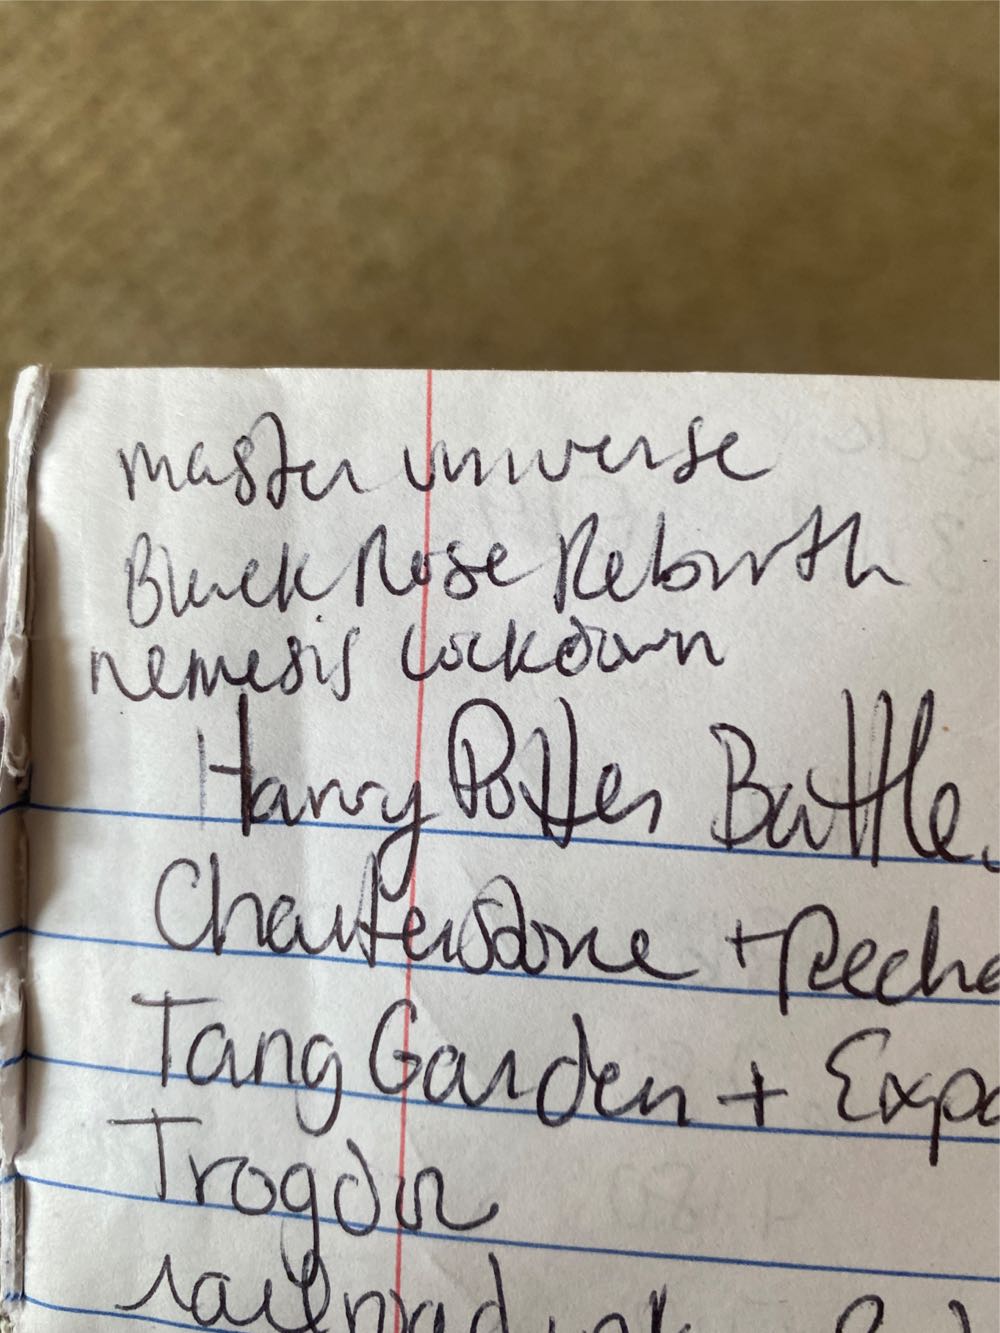 master universe
Black Rose Rebirth
nemesis lockdown
Harry Potter Battle
Charterstone + Recha
Tang Garden + Expa
Trogdor
railroad ink